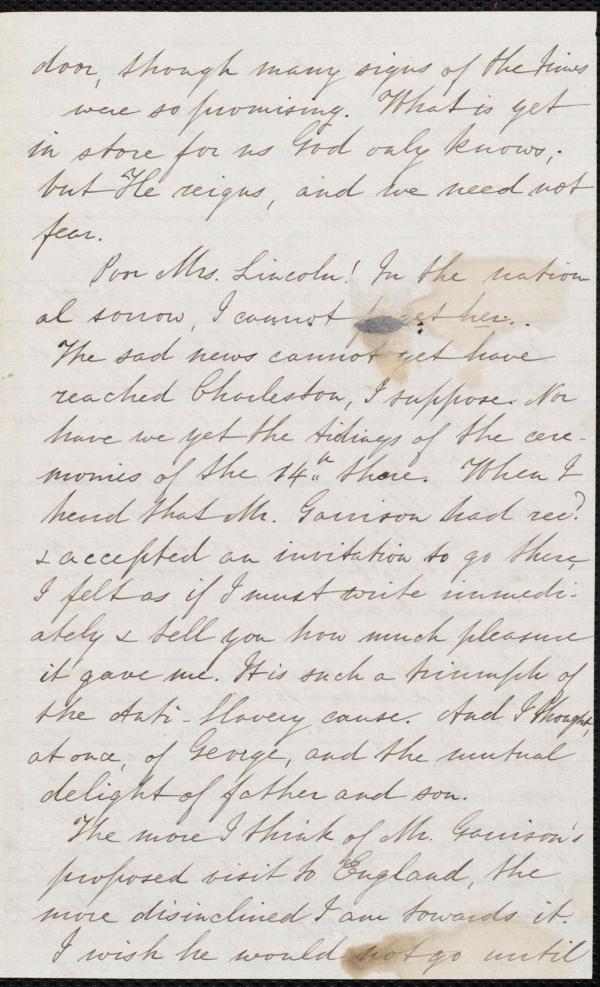 door, though many signs of the times
were so promising. What is yet
in store for us God only knows;
but He reigns, and we need not
fear.
Poor Mrs. Lincoln! In the nation
al sorrow, I cannot forget her.
The sad news cannot yet have
reached Charleston, I suppose. Nor
have we yet the tidings of the cere-
monies of the 14th there. When I
heard that Mr. Garrison had recd.
& accepted an invitation to go there,
I felt as if I must write immedi-
ately & tell you how much pleasure
it gave me. It is such a triumph of
the Anti-Slavery cause. And I thought,
at once, of George, and the mutual
delight of father and son.
The more I think of Mr. Garrison's
proposed visit to England, the
more disinclined I am towards it.
I wish he would not go until